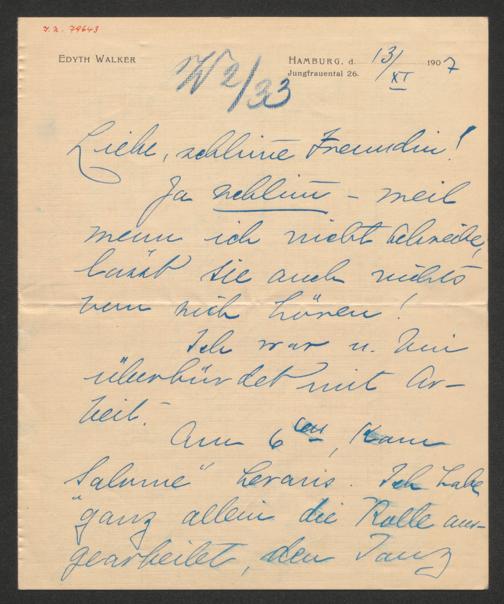 I.N. 79643
EDYTH WALKER
W 2/33
HAMBURG, d. 13/XI 1907
Jungfrauental 26.
Liebe, schlime Freundin!
Ja schlim – weil
wenn ich nicht schreibe,
lässt sie auch nichts
von sich hören!
Ich war u. bin
überbürdet mit Ar-
beit.
Am 6ten kam
"Salome" heraus. Ich habe
ganz allein die Rolle aus-
gearbeitet, den Tanz